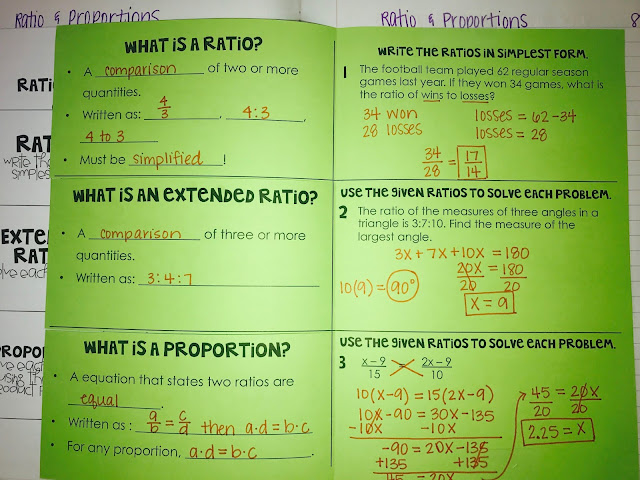 Ratio & Proportions
Ratio & Proportions
8
WHAT IS A RATIO?
• A comparison of two or more
quantities.
• Written as: 4/3, 4:3,
4 to 3
• Must be simplified!
WRITE THE RATIOS IN SIMPLEST FORM.
1 The football team played 62 regular season
games last year. If they won 34 games, what is
the ratio of wins to losses?
34 won losses = 62-34
28 losses losses = 28
34/28 = 17/14
WHAT IS AN EXTENDED RATIO?
• A comparison of three or more
quantities.
• Written as: 3:4:7
USE THE GIVEN RATIOS TO SOLVE EACH PROBLEM.
2 The ratio of the measures of three angles in a
triangle is 3:7:10. Find the measure of the
largest angle.
3x + 7x + 10x = 180
20x = 180
20 20
10(9) = 90°
x = 9
WHAT IS A PROPORTION?
• A equation that states two ratios are
equal.
• Written as: a/b = c/d then a·d = b·c
• For any proportion, a·d = b·c.
USE THE GIVEN RATIOS TO SOLVE EACH PROBLEM.
3 x-9/15 2x-9/10
10(x-9) = 15(2x-9)
10x-90 = 30x-135
-10x -10x
-90 = 20x-135
+135 +135
45 = 20x
45 = 20x
20 20
2.25 = x
RATI
RAT
write the
simples
EXTE
RAT
PROPO